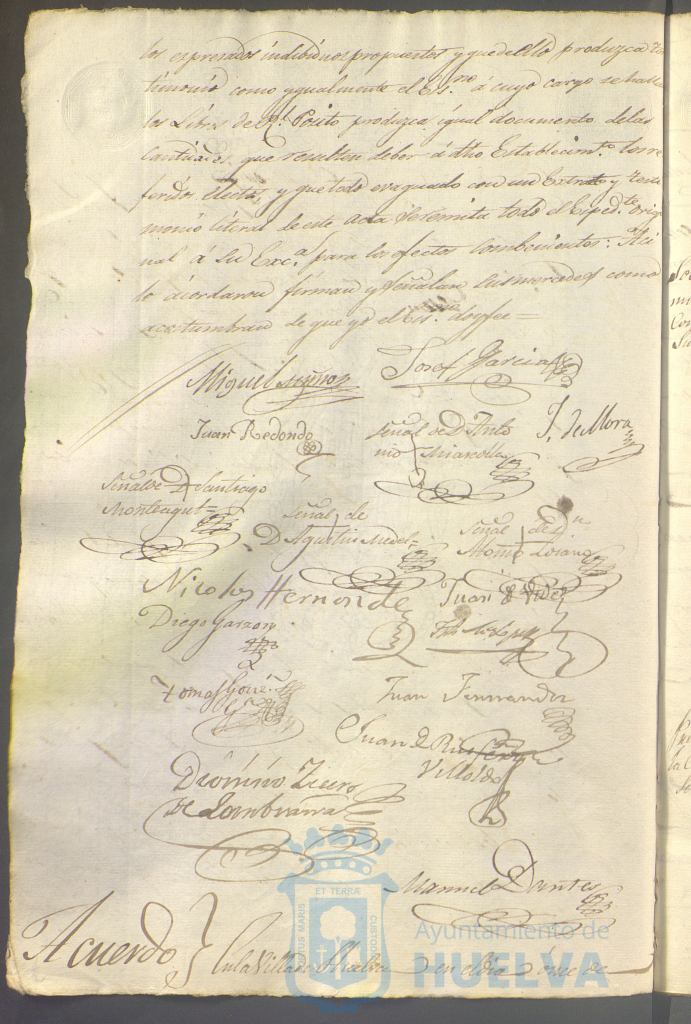 los expresados individuos propuestos y que de ello produzca tes
timonio como ygualmente el Es.no á cuyo cargo se halla
los Libros de Rl. Posito produzca igual documento de las
Cantidades que resulten deber á dho Establecim.to los re
feridos electos, y que todo evaquado con un Extrato y testi
monio literal de este acta se remita todo el Exped.te origi
nal á Su Exc.a para los efectos combenientos: Asi
lo acordaron firman y señalan sus mercedes como
acostumbran de que yo el Es.no doy fee =
Miguel Muñoz
Josef Garcia
Juan Redondo
Señal de D Anto
nio
J. de Mora
Señal de D Santiago
Monteagut =
Señal de
D Agustin
Señal de Dn
Alonso Lozano
Nicolas Hernandez
Juan de
Diego Garzon
Tomas
Juan Fernandez
Juan de
Villoldo
Dionisio
de Zambrana
Manuel Dantes
Acuerdo } En la Villa de Huelva en el dia once de
ET TERRÆ
PORTUS MARIS
CUSTODIA
Ayuntamiento de
HUELVA